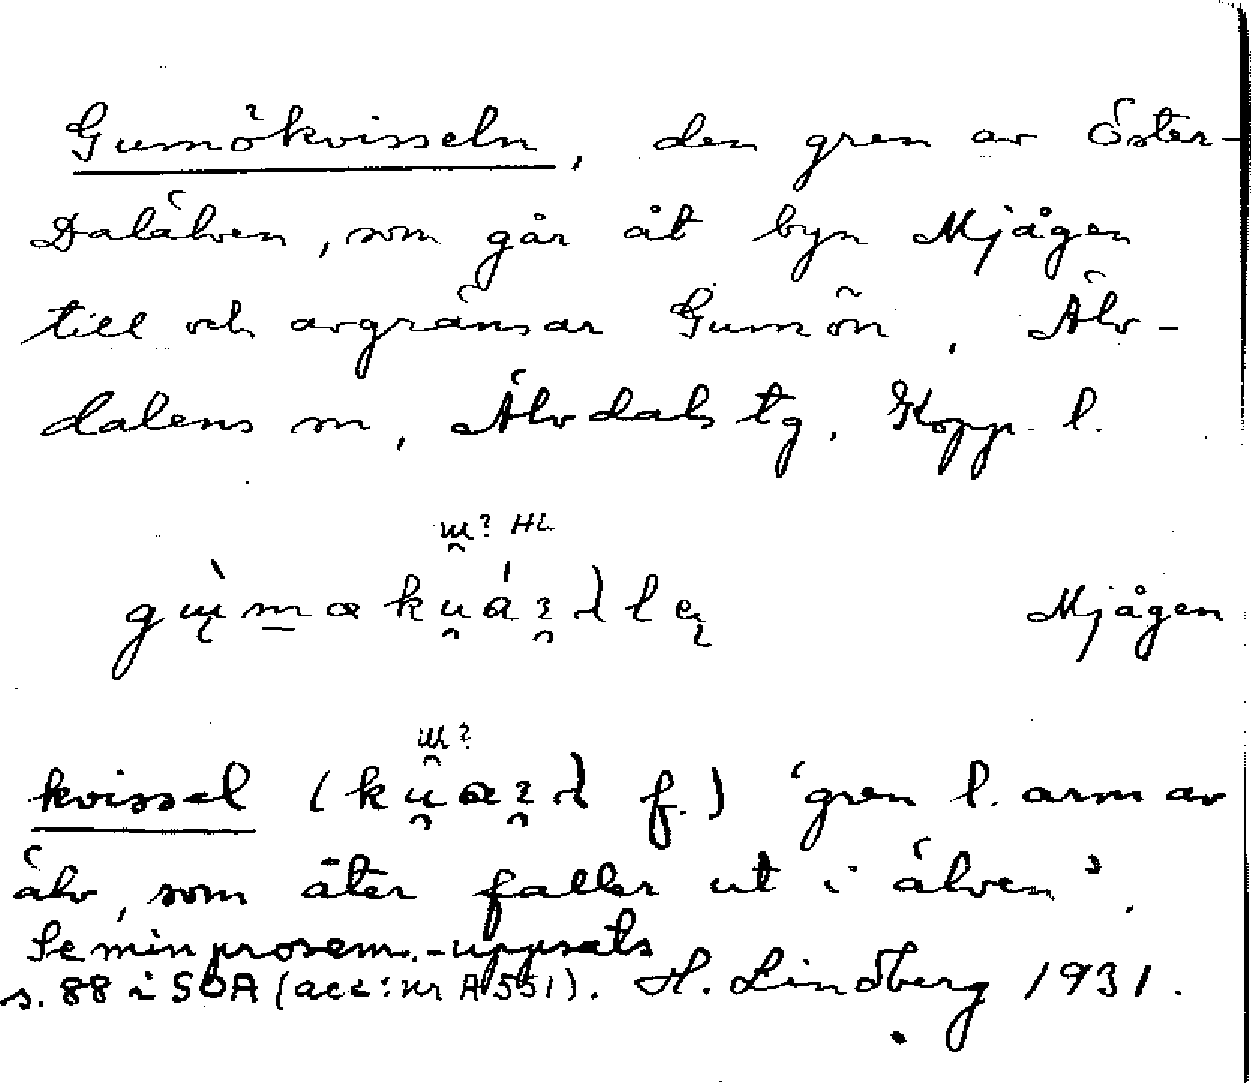 Gumökvisseln, den gren av Öster-
Dalälven, som går åt byn Mjågen
till och avgränsar Gumön, Älv-
dalens sn, Älvdals tg, Kopp. l.
? HL
Mjågen
kvissel ( f.) 'gren l. arm av
älv, som åter faller ut i älven'.
Se min prosem.-uppsats
s. 88 i SOA (acc:nr A551). H. Lindberg 1931.